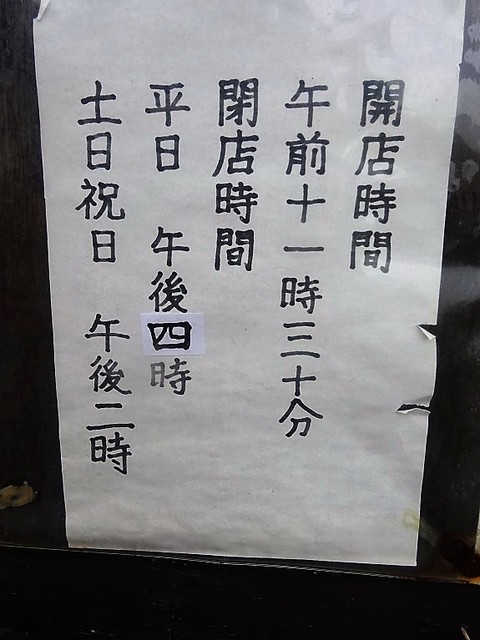 開店時間
午前十一時三十分
閉店時間
平日 午後四時
土日祝日 午後二時